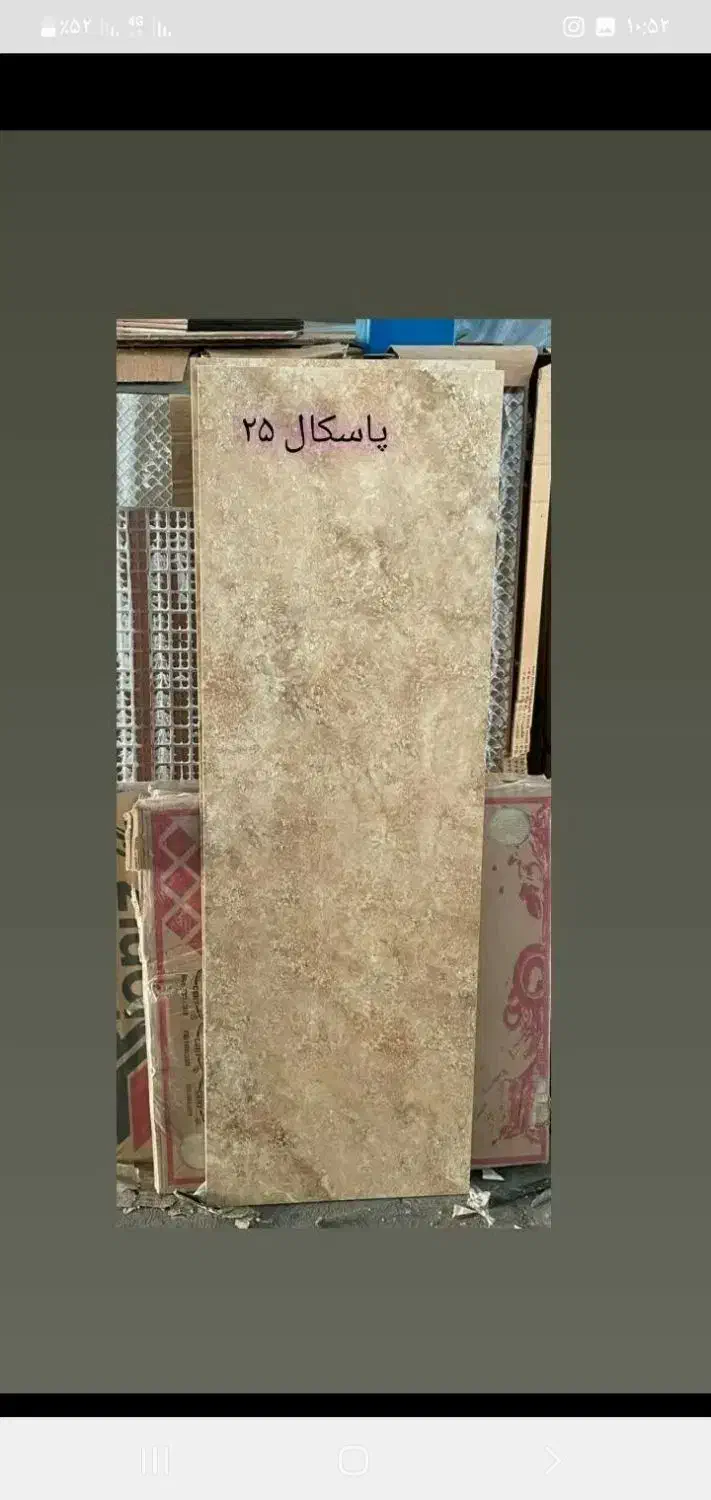 ٪۵۲ 4G ۱۰:۵۲
پاسکال ۲۵